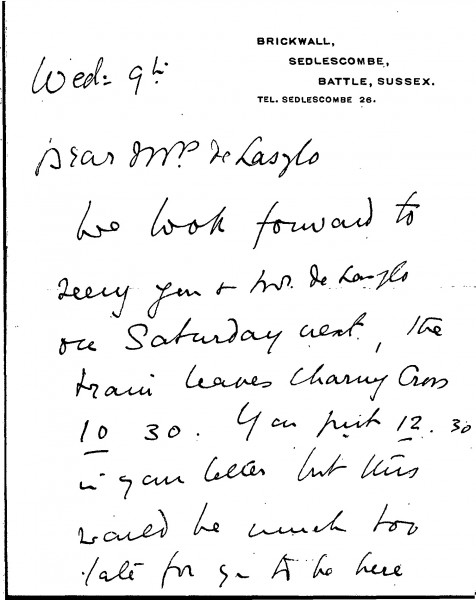 BRICKWALL,
SEDLESCOMBE,
BATTLE, SUSSEX.
TEL. SEDLESCOMBE 26.
Wed: 9th
Dear Mrs de Laszlo
We look forward to
seeing you & Mr. de Laszlo
on Saturday next, the
train leaves Charing Cross
10 30. You put 12.30
in your letter but this
would be much too
late for you to be here